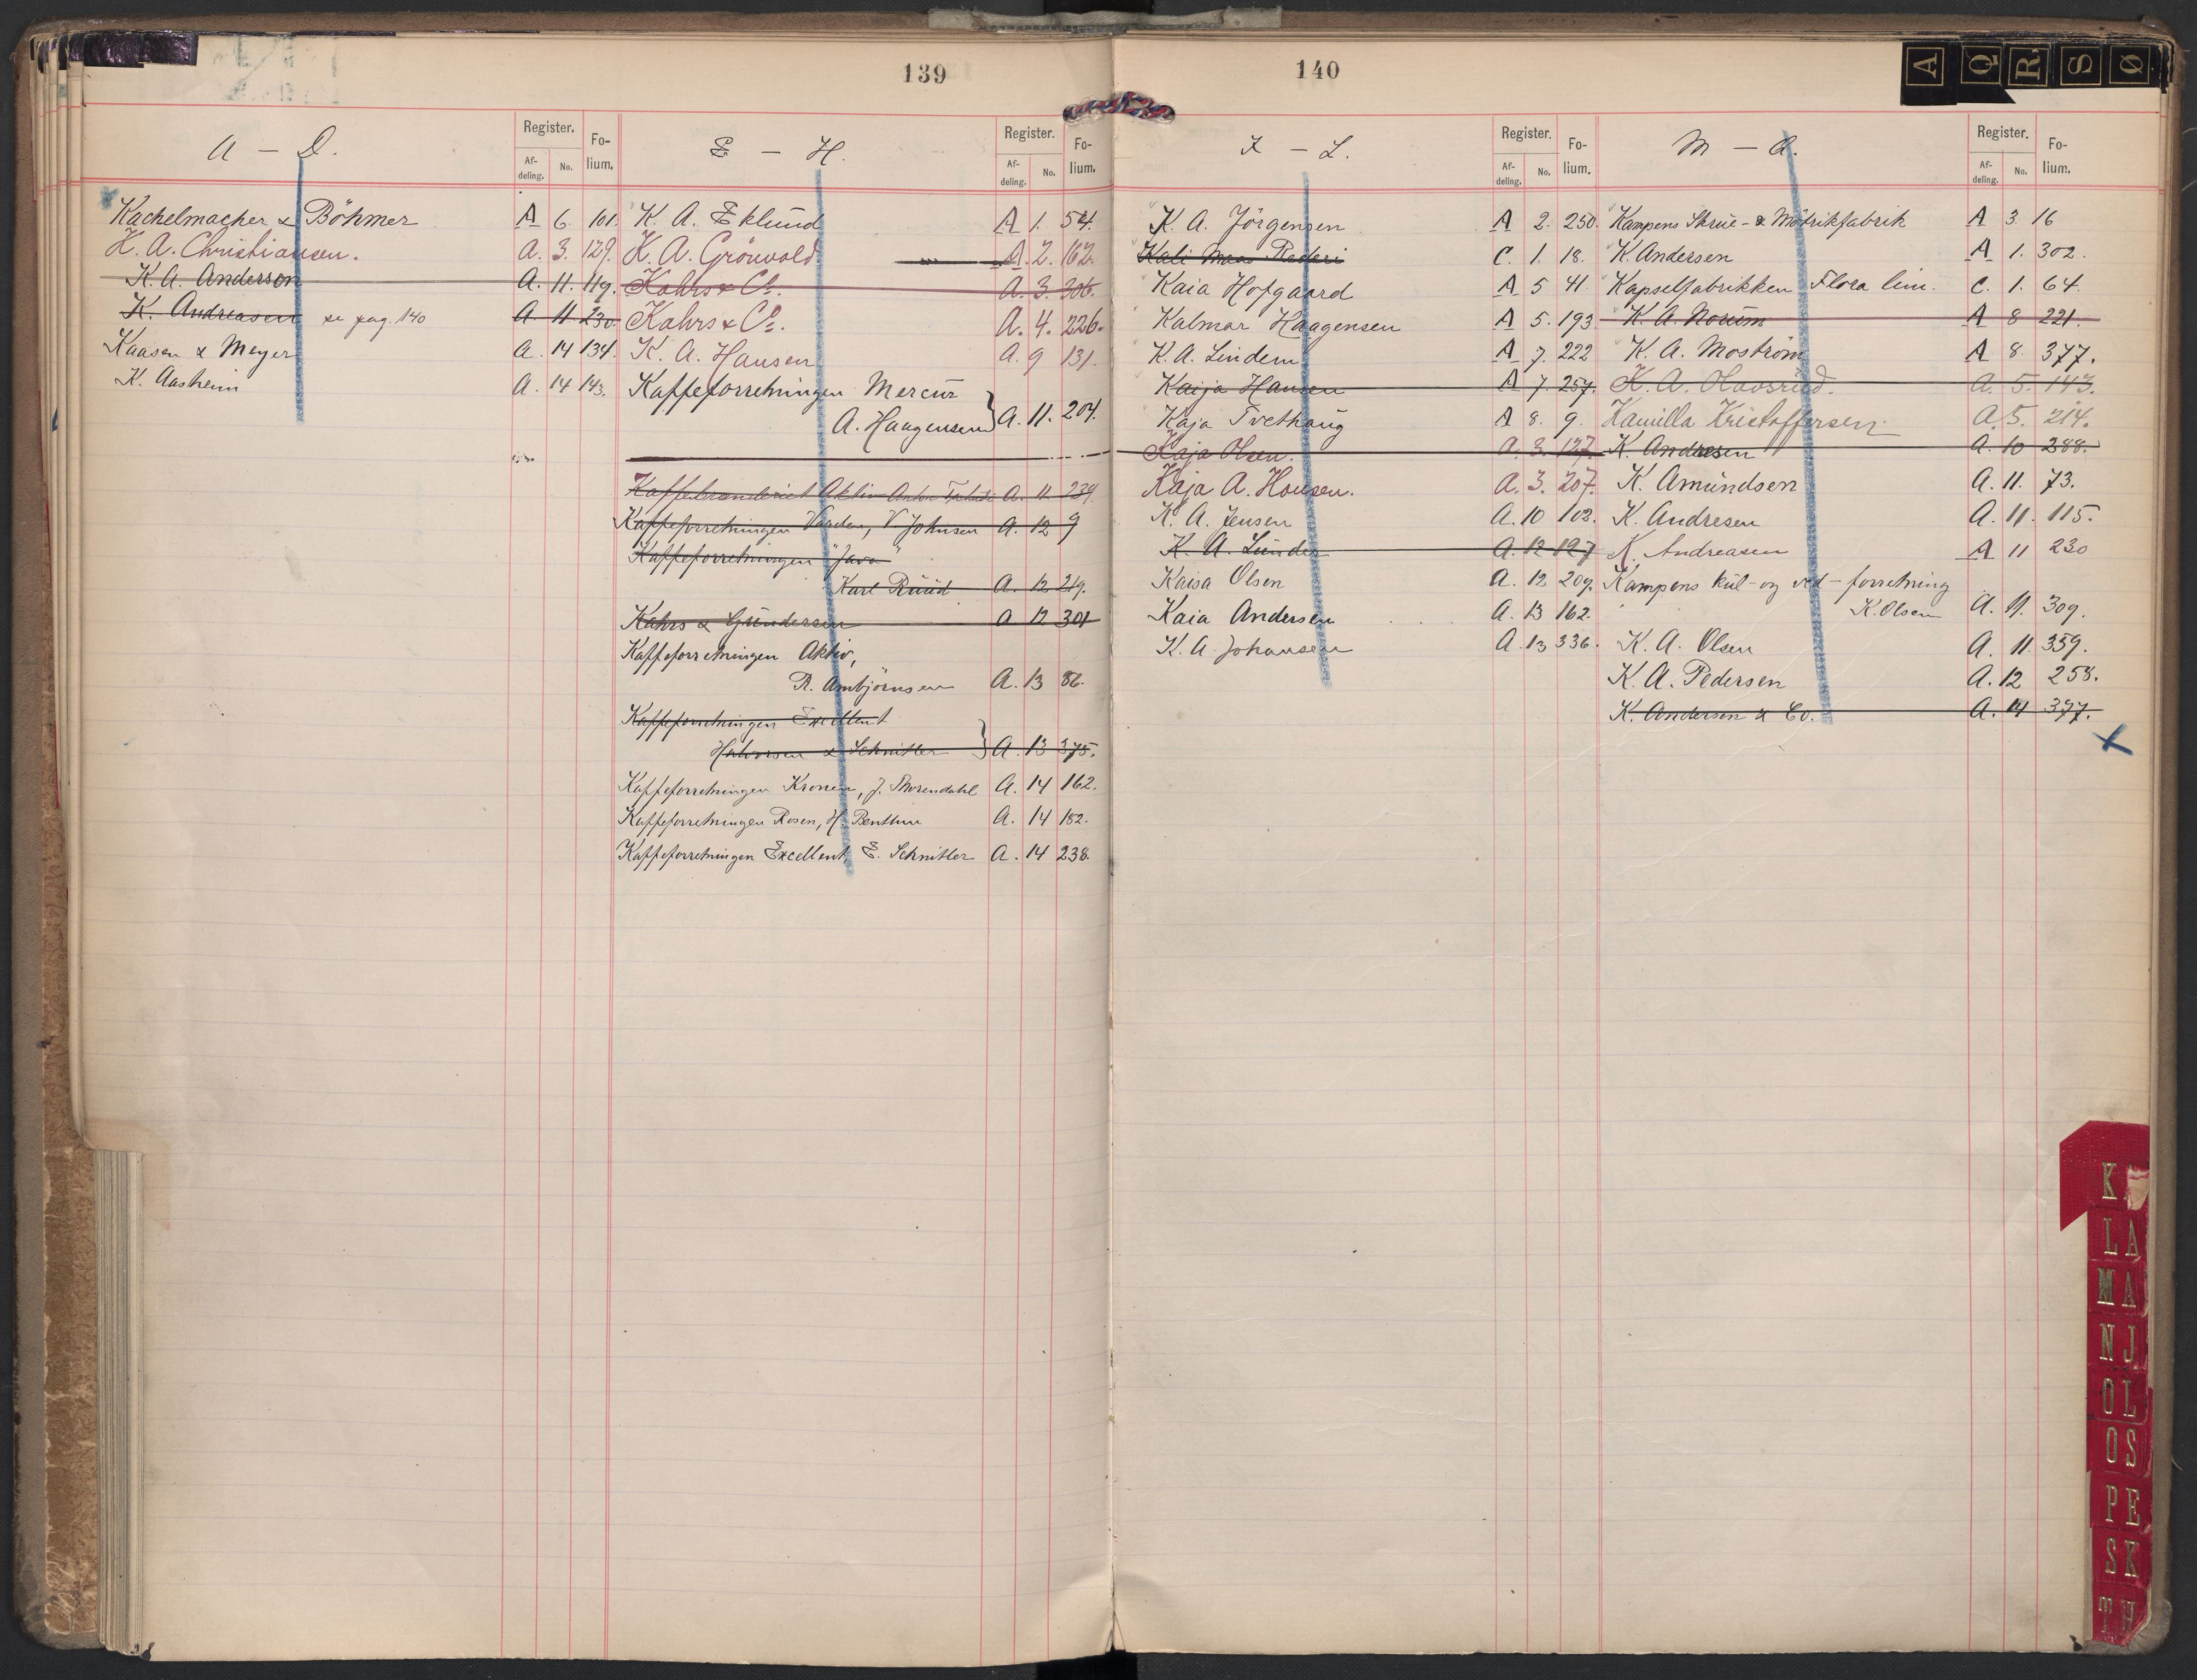 139
A — D.
Register.
Af-deling.
No.
Fo-lium.
Kachelmacher & Böhmer A 6. 101.
K. A. Christiansen. A. 3. 129.
K. A. Anderson A. 11. 119.
K. Andreasen se pag. 140 A. 11. 230.
Kaasen & Meyer A. 14 134.
K. Aasheim A. 14 143.
E — H.
Register.
Af-deling.
No.
Fo-lium.
K. A. Eklund A 1. 54.
K. A. Grönvold A. 2. 162.
Kahrs & Co. A. 3. 306.
Kahrs & Co. A. 4. 226.
K. A. Hansen A. 9 131.
Kaffeforretningen Mercur
A. Haagensen A. 11. 204.
Kaffebrænderiet Aktiv Anton A. 11 239.
Kaffeforretningen Varden, V. Johnsen A. 12 9
Kaffeforretningen "Java"
Karl Ruud A. 12 219.
Kahrs & Gundersen A 12 301
Kaffeforretningen Aktiv,
R. Ambjörnsen A. 13 86.
Kaffeforretningen Excellent
Halvorsen & Schnitler A. 13 375.
Kaffeforretningen Kronen, J. Thorendahl A. 14 162.
Kaffeforretningen Rosen, H. Benthin A. 14 182.
Kaffeforretningen Excellent, E. Schnitler A. 14 238.
140
I — L.
Register.
Af-deling.
No.
Fo-lium.
K. A. Jörgensen A 2. 250.
Kali Maas Rederi C. 1. 18.
Kaia Hofgaard A 5 41.
Kalmar Haagensen A 5. 193
K. A. Lindem A 7. 222
Kaija Hansen A 7. 257.
Kaja Tvethaug A 8. 9.
Kaja Olsen. A. 3. 127.
Kaja A. Hansen. A. 3. 207.
K. A. Jensen A. 10 102.
K. A. Lunder A. 12 127
Kaisa Olsen A. 12 209.
Kaia Andersen A. 13 162.
K. A. Johansen A. 13 336.
M — Å.
Register.
Af-deling.
No.
Fo-lium.
Kampens Skrue- & Möbrikfabrik A 3. 16
K. Andersen A 1. 302.
Kapselfabrikken Flora lim. C. 1. 64.
K. A. Norum A 8 221.
K. A. Moström A 8. 377.
K. A. Olavsrud. A. 5. 143.
Kamilla Kristoffersen A. 5. 214.
K. Andresen A. 10 288.
K. Amundsen A. 11. 73.
K. Andresen A. 11. 115.
K. Andreasen A 11 230
Kampens kul- og ved-forretning
K. Olsen A. 11. 309.
K. A. Olsen A. 11. 359.
K. A. Pedersen A. 12 258.
K. Andersen & Co. A. 14 377.
A Q R S Ø
K
L A
M A
N J
O L
O S
P E
S K
T H